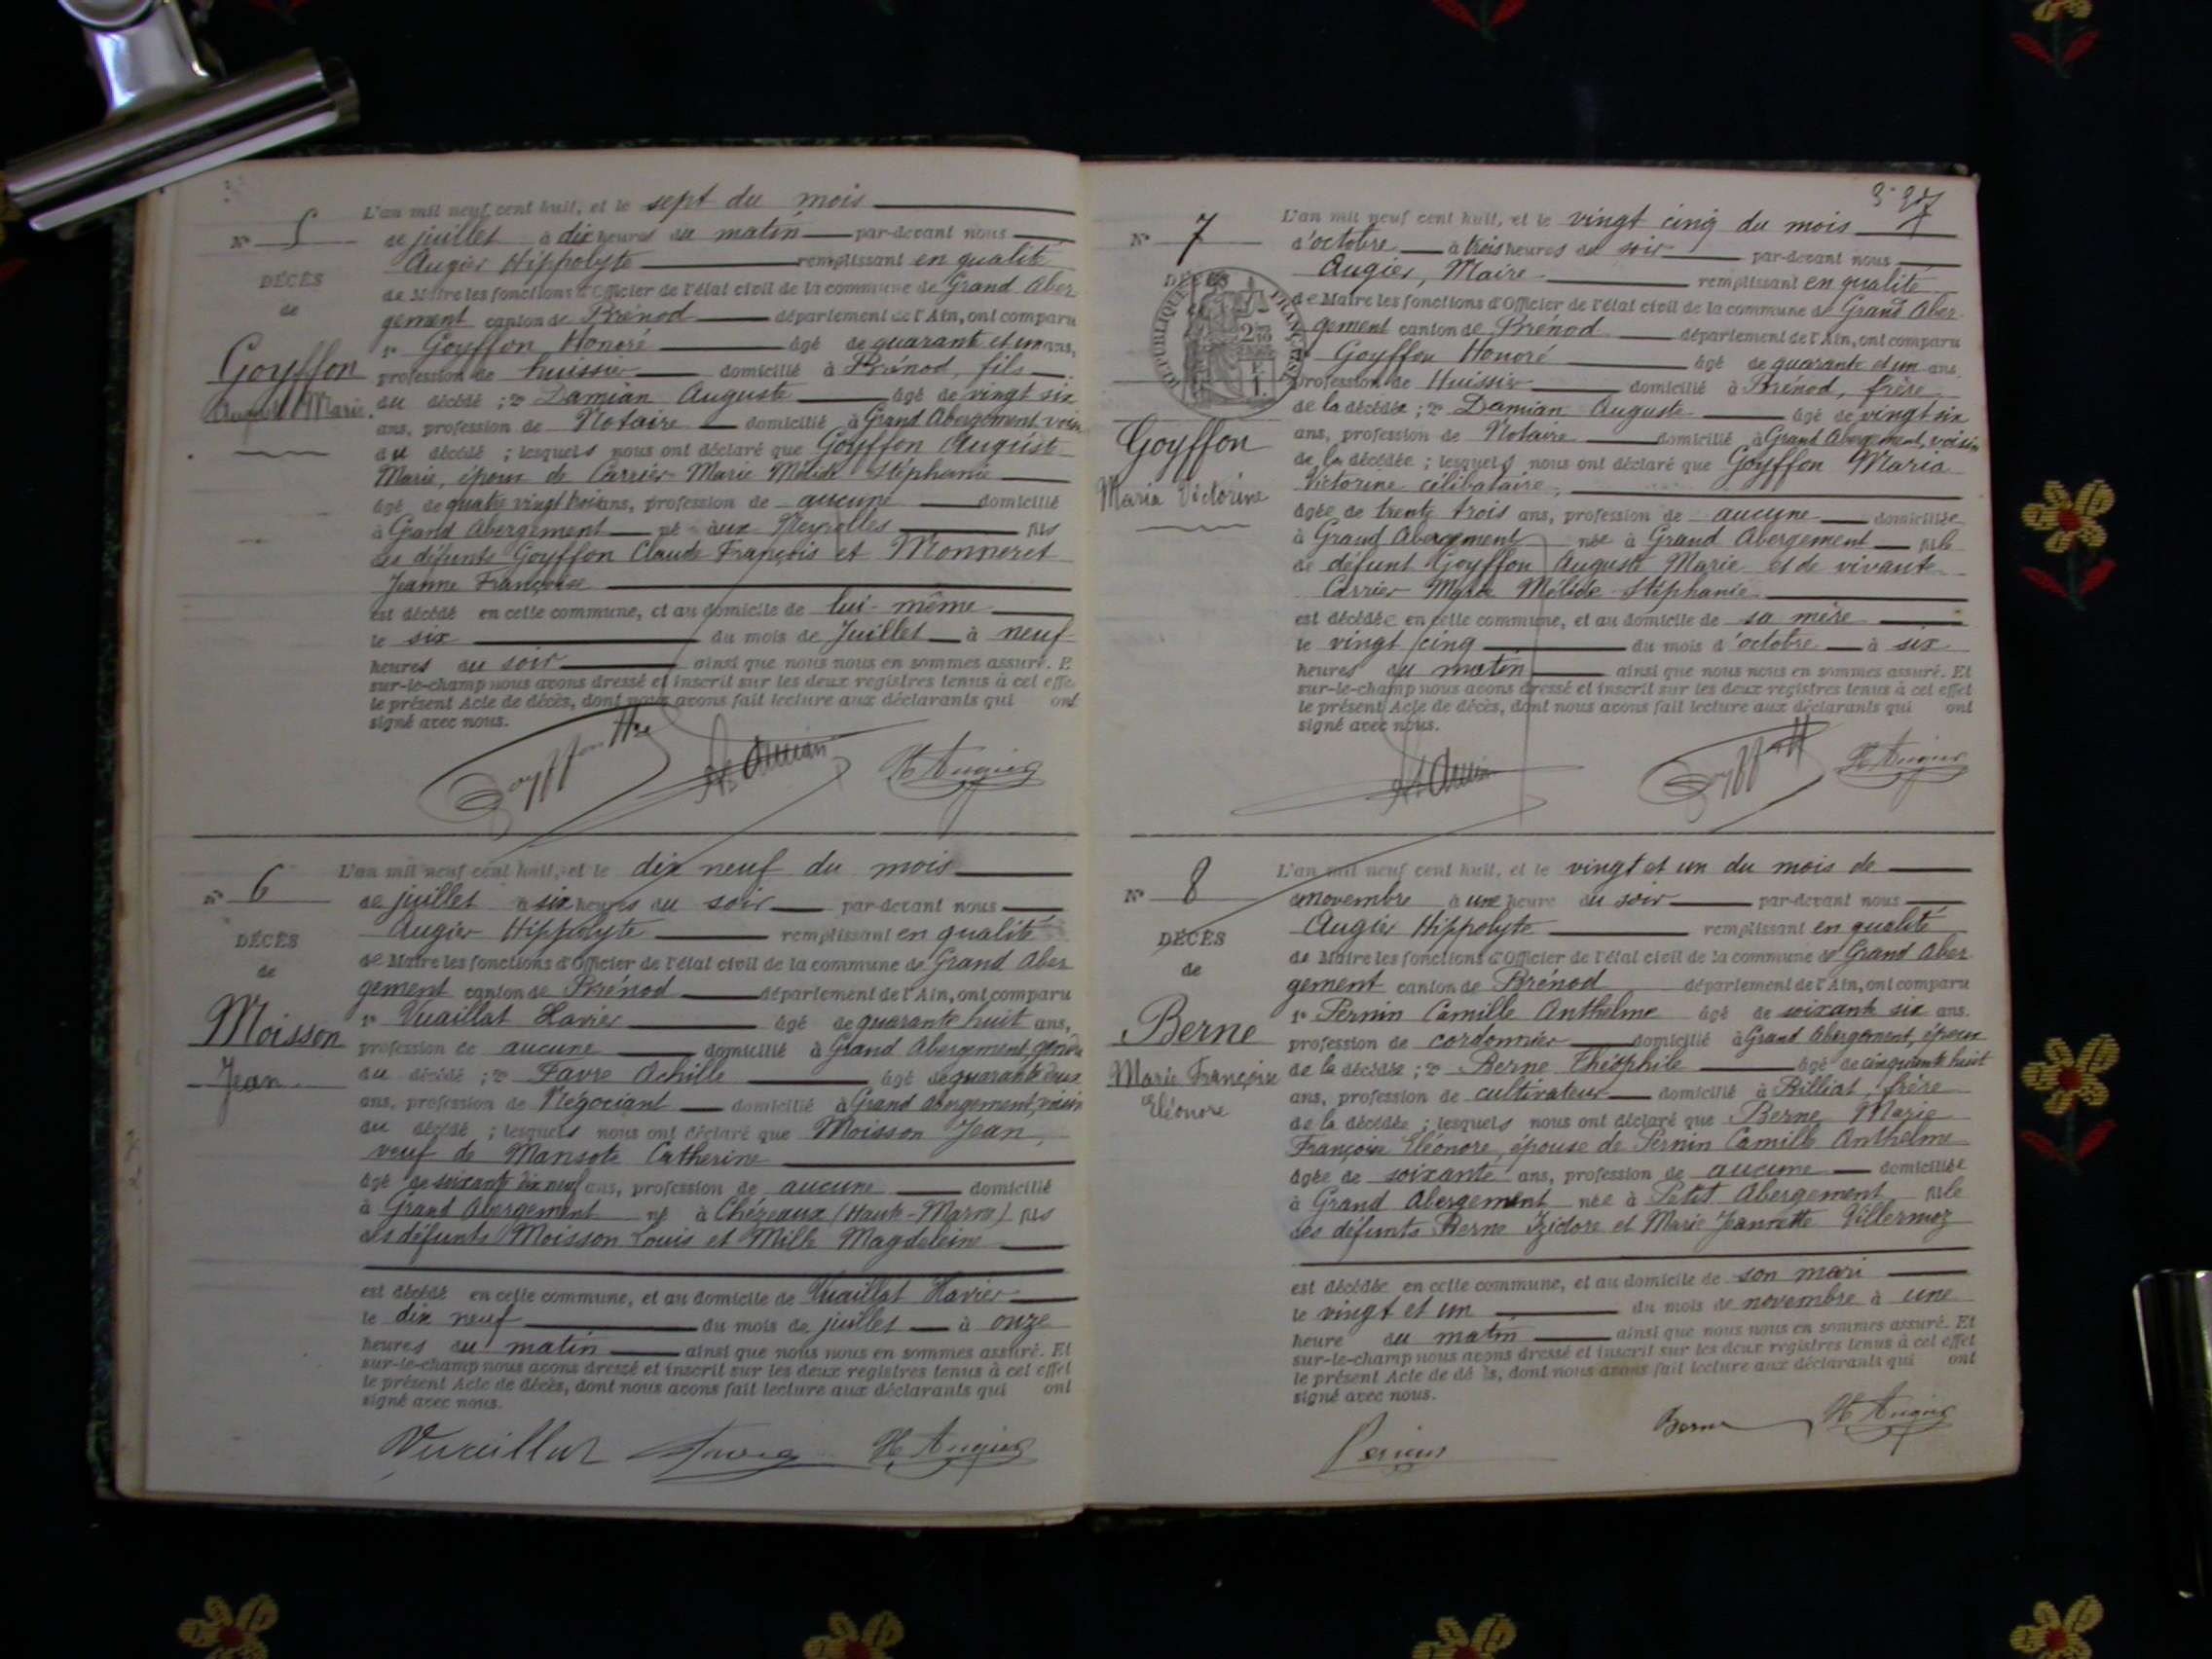 N° 5
DÉCÈS
de
Goyffon
Auguste Marie.
L'an mil neuf cent huit, et le sept du mois
de juillet à dix heures du matin par-devant nous
Augier Hippolyte remplissant en qualité
de Maire les fonctions d'Officier de l'état civil de la commune de Grand Aber
gement canton de Brénod département de l'Ain, ont comparu
1° Goyffon Honoré âgé de quarante et un ans,
profession de huissier domicilié à Brénod, fils
du décédé ; 2° Damian Auguste âgé de vingt six
ans, profession de Notaire domicilié à Grand Abergement, voisin
du décédé ; lesquels nous ont déclaré que Goyffon Auguste
Marie, époux de Carrier Marie Mélide Stéphanie
âgé de quatre vingt trois ans, profession de aucune domicilié
à Grand Abergement né aux Neyrolles fils
des défunts Goyffon Claude François et Monneret
Jeanne Françoise
est décédé en cette commune, et au domicile de lui-même
le six du mois de Juillet à neuf
heures du soir ainsi que nous nous en sommes assuré. E
sur-le-champ nous avons dressé et inscrit sur les deux registres tenus à cet effe
le présent Acte de décès, dont nous avons fait lecture aux déclarants qui ont
signé avec nous.
Goyffon Hre A. Damian H Augier
N° 6
DÉCÈS
de
Moisson
Jean
L'an mil neuf cent huit, et le dix neuf du mois
de juillet à six heures du soir par-devant nous
Augier Hippolyte remplissant en qualité
de Maire les fonctions d'Officier de l'état civil de la commune de Grand Aber
gement canton de Brénod département de l'Ain, ont comparu
1° Vuaillat Xavier âgé de quarante huit ans,
profession de aucune domicilié à Grand Abergement, gendre
du décédé ; 2° Favre Achille âgé de quarante deux
ans, profession de Négociant domicilié à Grand Abergement, voisin
du décédé ; lesquels nous ont déclaré que Moisson Jean,
veuf de Mansote Catherine
âgé de soixante dix neuf ans, profession de aucune domicilié
à Grand Abergement né à Chézeaux (Haute-Marne) fils
des défunts Moisson Louis et Mille Magdeleine
est décédé en cette commune, et au domicile de Vuaillat Xavier
le dix neuf du mois de juillet à onze
heures du matin ainsi que nous nous en sommes assuré. Et
sur-le-champ nous avons dressé et inscrit sur les deux registres tenus à cet effet
le présent Acte de décès, dont nous avons fait lecture aux déclarants qui ont
signé avec nous.
Vuaillat Favre H Augier
7
N° 7
DÉCÈS
RÉPUBLIQUE FRANÇAISE
Goyffon
Maria Victorine
L'an mil neuf cent huit, et le vingt cinq du mois
d'octobre à trois heures du soir par-devant nous
Augier, Maire remplissant en qualité
de Maire les fonctions d'Officier de l'état civil de la commune de Grand Aber
gement canton de Brénod département de l'Ain, ont comparu
Goyffon Honoré âgé de quarante et un ans,
profession de Huissier domicilié à Brénod, frère
de la décédée ; 2° Damian Auguste âgé de vingt six
ans, profession de Notaire domicilié à Grand Abergement, voisin
de la décédée ; lesquels nous ont déclaré que Goyffon Maria
Victorine célibataire,
âgée de trente trois ans, profession de aucune domiciliée
à Grand Abergement née à Grand Abergement fille
de défunt Goyffon Auguste Marie et de vivante
Carrier Marie Mélide Stéphanie
est décédée en cette commune, et au domicile de sa mère
le vingt cinq du mois d'octobre à six
heures du matin ainsi que nous nous en sommes assuré. Et
sur-le-champ nous avons dressé et inscrit sur les deux registres tenus à cet effet
le présent Acte de décès, dont nous avons fait lecture aux déclarants qui ont
signé avec nous.
A. Damian Goyffon H H Augier
N° 8
DÉCÈS
de
Berne
Marie Françoise
Eléonore
L'an mil neuf cent huit, et le vingt et un du mois de
novembre à une heure du soir par-devant nous
Augier Hippolyte remplissant en qualité
de Maire les fonctions d'Officier de l'état civil de la commune de Grand Aber
gement canton de Brénod département de l'Ain, ont comparu
1° Pernin Camille Anthelme âgé de soixante six ans.
profession de cordonnier domicilié à Grand Abergement, époux
de la décédée ; 2° Berne Théophile âgé de cinquante huit
ans, profession de cultivateur domicilié à Billiat, frère
de la décédée ; lesquels nous ont déclaré que Berne Marie
Françoise Eléonore, épouse de Pernin Camille Anthelme
âgée de soixante ans, profession de aucune domiciliée
à Grand Abergement née à Petit Abergement fille
des défunts Berne Izidore et Marie Jeannette Villermoz
est décédée en cette commune, et au domicile de son mari
le vingt et un du mois de novembre à une
heure du matin ainsi que nous nous en sommes assuré. Et
sur-le-champ nous avons dressé et inscrit sur les deux registres tenus à cet effet
le présent Acte de dé ès, dont nous avons fait lecture aux déclarants qui ont
signé avec nous.
Pernin Berne H Augier